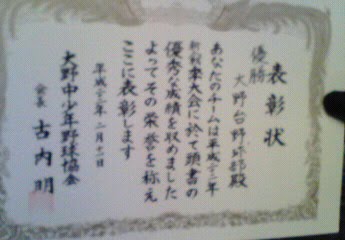 表彰状
優勝
大野台野球部殿
あなたのチームは平成二二年
大会に於て頭書の
優秀な成績を収めました
よってその栄誉を称え
ここに表彰します
平成二二年 二月十一日
大野中少年野球協会
会長 古内 明